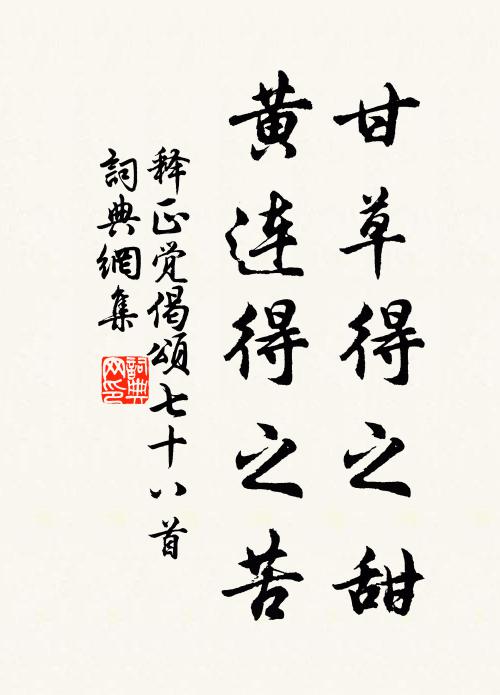 甘草得之甜
黄连得之苦
释正觉偈颂七十八首
詞典網集
詞典网印